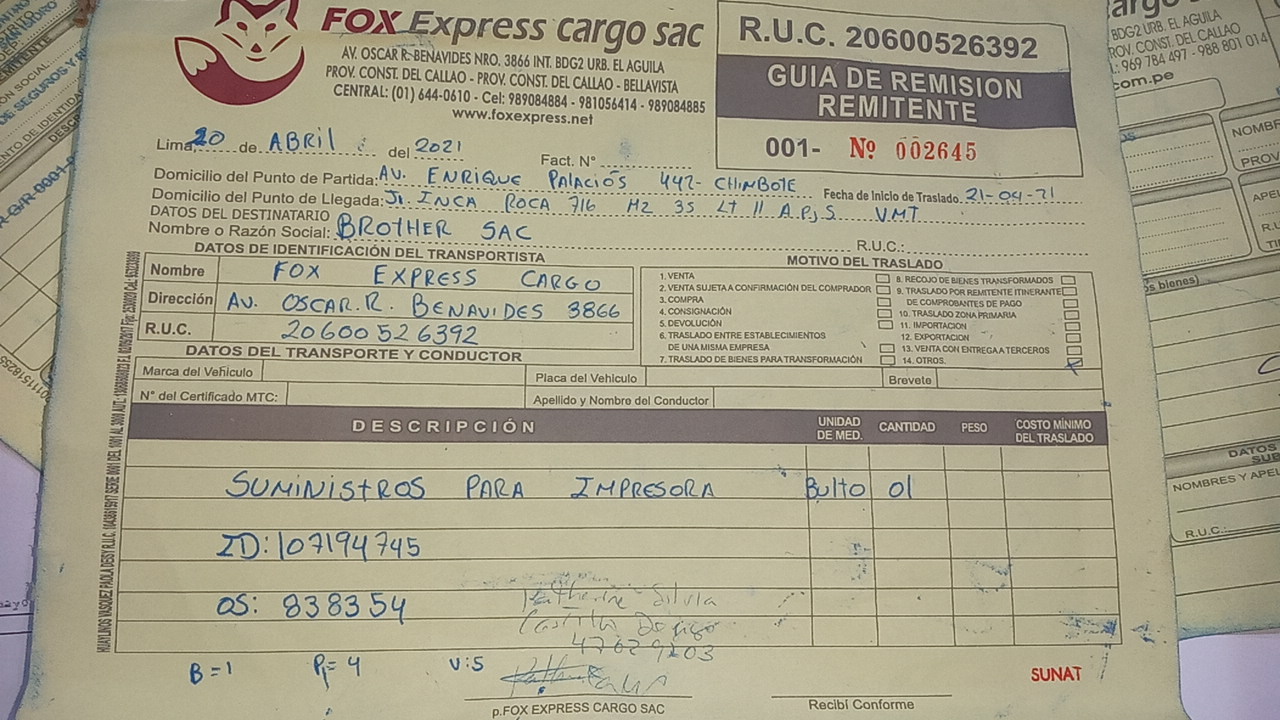 FOX Express cargo sac
AV. OSCAR R. BENAVIDES NRO. 3866 INT. BDG2 URB. EL AGUILA
PROV. CONST. DEL CALLAO - PROV. CONST. DEL CALLAO - BELLAVISTA
CENTRAL: (01) 644-0610 - Cel: 989084884 - 981056414 - 989084885
www.foxexpress.net
R.U.C. 20600526392
GUIA DE REMISION
REMITENTE
001- Nº 002645
Lima, 20 de ABRIL del 2021 Fact. N°
Domicilio del Punto de Partida: AV. ENRIQUE PALACIOS 442- CHIMBOTE Fecha de Inicio de Traslado. 21-04-21
Domicilio del Punto de Llegada: Jr. INCA ROCA 716 Mz 35 Lt 11 A.P.J.S VMT
DATOS DEL DESTINATARIO
Nombre o Razón Social: BROTHER SAC R.U.C.:
DATOS DE IDENTIFICACIÓN DEL TRANSPORTISTA
Nombre FOX EXPRESS CARGO
Dirección AV. OSCAR.R. BENAVIDES 3866
R.U.C. 20600526392
MOTIVO DEL TRASLADO
1. VENTA
2. VENTA SUJETA A CONFIRMACIÓN DEL COMPRADOR
3. COMPRA
4. CONSIGNACIÓN
5. DEVOLUCIÓN
6. TRASLADO ENTRE ESTABLECIMIENTOS
DE UNA MISMA EMPRESA
7. TRASLADO DE BIENES PARA TRANSFORMACIÓN
8. RECOJO DE BIENES TRANSFORMADOS
9. TRASLADO POR REMITENTE ITINERANTE
DE COMPROBANTES DE PAGO
10. TRASLADO ZONA PRIMARIA
11. IMPORTACION
12. EXPORTACION
13. VENTA CON ENTREGA A TERCEROS
14. OTROS. X
DATOS DEL TRANSPORTE Y CONDUCTOR
Marca del Vehículo Placa del Vehiculo Brevete
N° del Certificado MTC: Apellido y Nombre del Conductor
DESCRIPCIÓN UNIDAD DE MED. CANTIDAD PESO COSTO MÍNIMO DEL TRASLADO
SUMINISTROS PARA IMPRESORA Bulto 01
ID: 107194745
OS: 838354
Katherine Silvia
Castillo
47029203
B=1 P=4 V:5
p.FOX EXPRESS CARGO SAC
Recibí Conforme
SUNAT
cargo s
BDG2 URB. EL AGUILA
PROV. CONST. DEL CALLAO
969 784 497 - 988 801 014
com.pe
NOMB
PROV
APE
R.U
s bienes)
DATOS
SUB
NOMBRES Y APEL
R.U.C.: